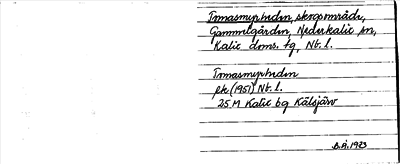 Tomasmyrheden, skogsområde,
Gammelgården, Nederkalix sn,
Kalix doms. tg, Nb. l.
Tomasmyrheden
ek (1951) Nb. l.
25 M Kalix bg Kälsjärv
B.Å. 1973